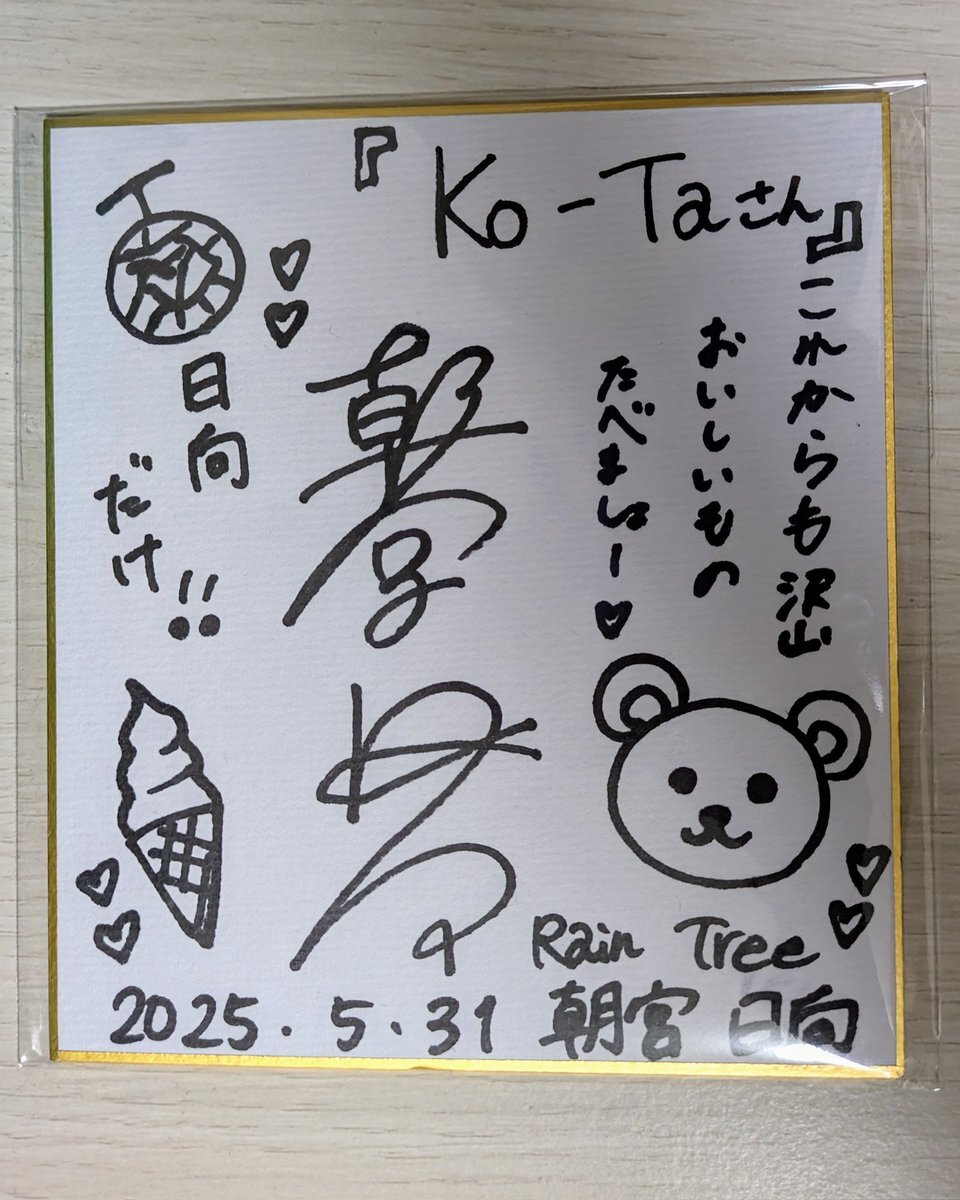 『Ko-Taさん』
これからも沢山
おいしいもの
たべましょー
日向
だけ!!
朝宮
日向
Rain Tree
2025.5.31 朝宮 日向